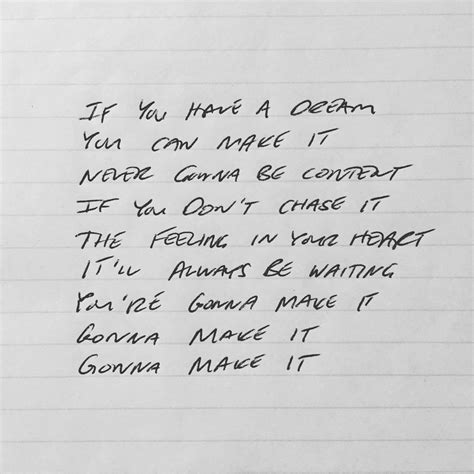 IF YOU HAVE A DREAM
YOU CAN MAKE IT
NEVER GONNA BE CONTENT
IF YOU DON'T CHASE IT
THE FEELING IN YOUR HEART
IT'LL ALWAYS BE WAITING
YOU'RE GONNA MAKE IT
GONNA MAKE IT
GONNA MAKE IT